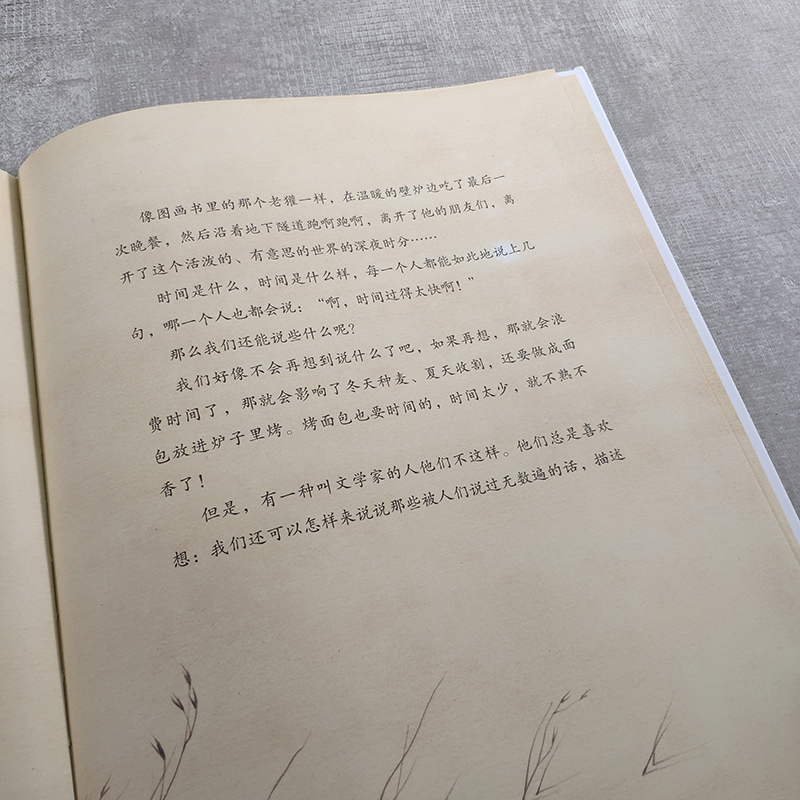 像图画书里的那个老獾一样，在温暖的壁炉边吃了最后一
次晚餐，然后沿着地下隧道跑啊跑啊，离开了他的朋友们，离
开了这个活泼的、有意思的世界的深夜时分……
时间是什么，时间是什么样，每一个人都能如此地说上几
句，哪一个人也都会说：“啊，时间过得太快啊！”
那么我们还能说些什么呢？
我们好像不会再想到说什么了吧，如果再想，那就会浪
费时间了，那就会影响了冬天种麦、夏天收割，还要做成面
包放进炉子里烤。烤面包也要时间的，时间太少，就不熟不
香了！
但是，有一种叫文学家的人他们不这样。他们总是喜欢
想：我们还可以怎样来说说那些被人们说过无数遍的话，描述